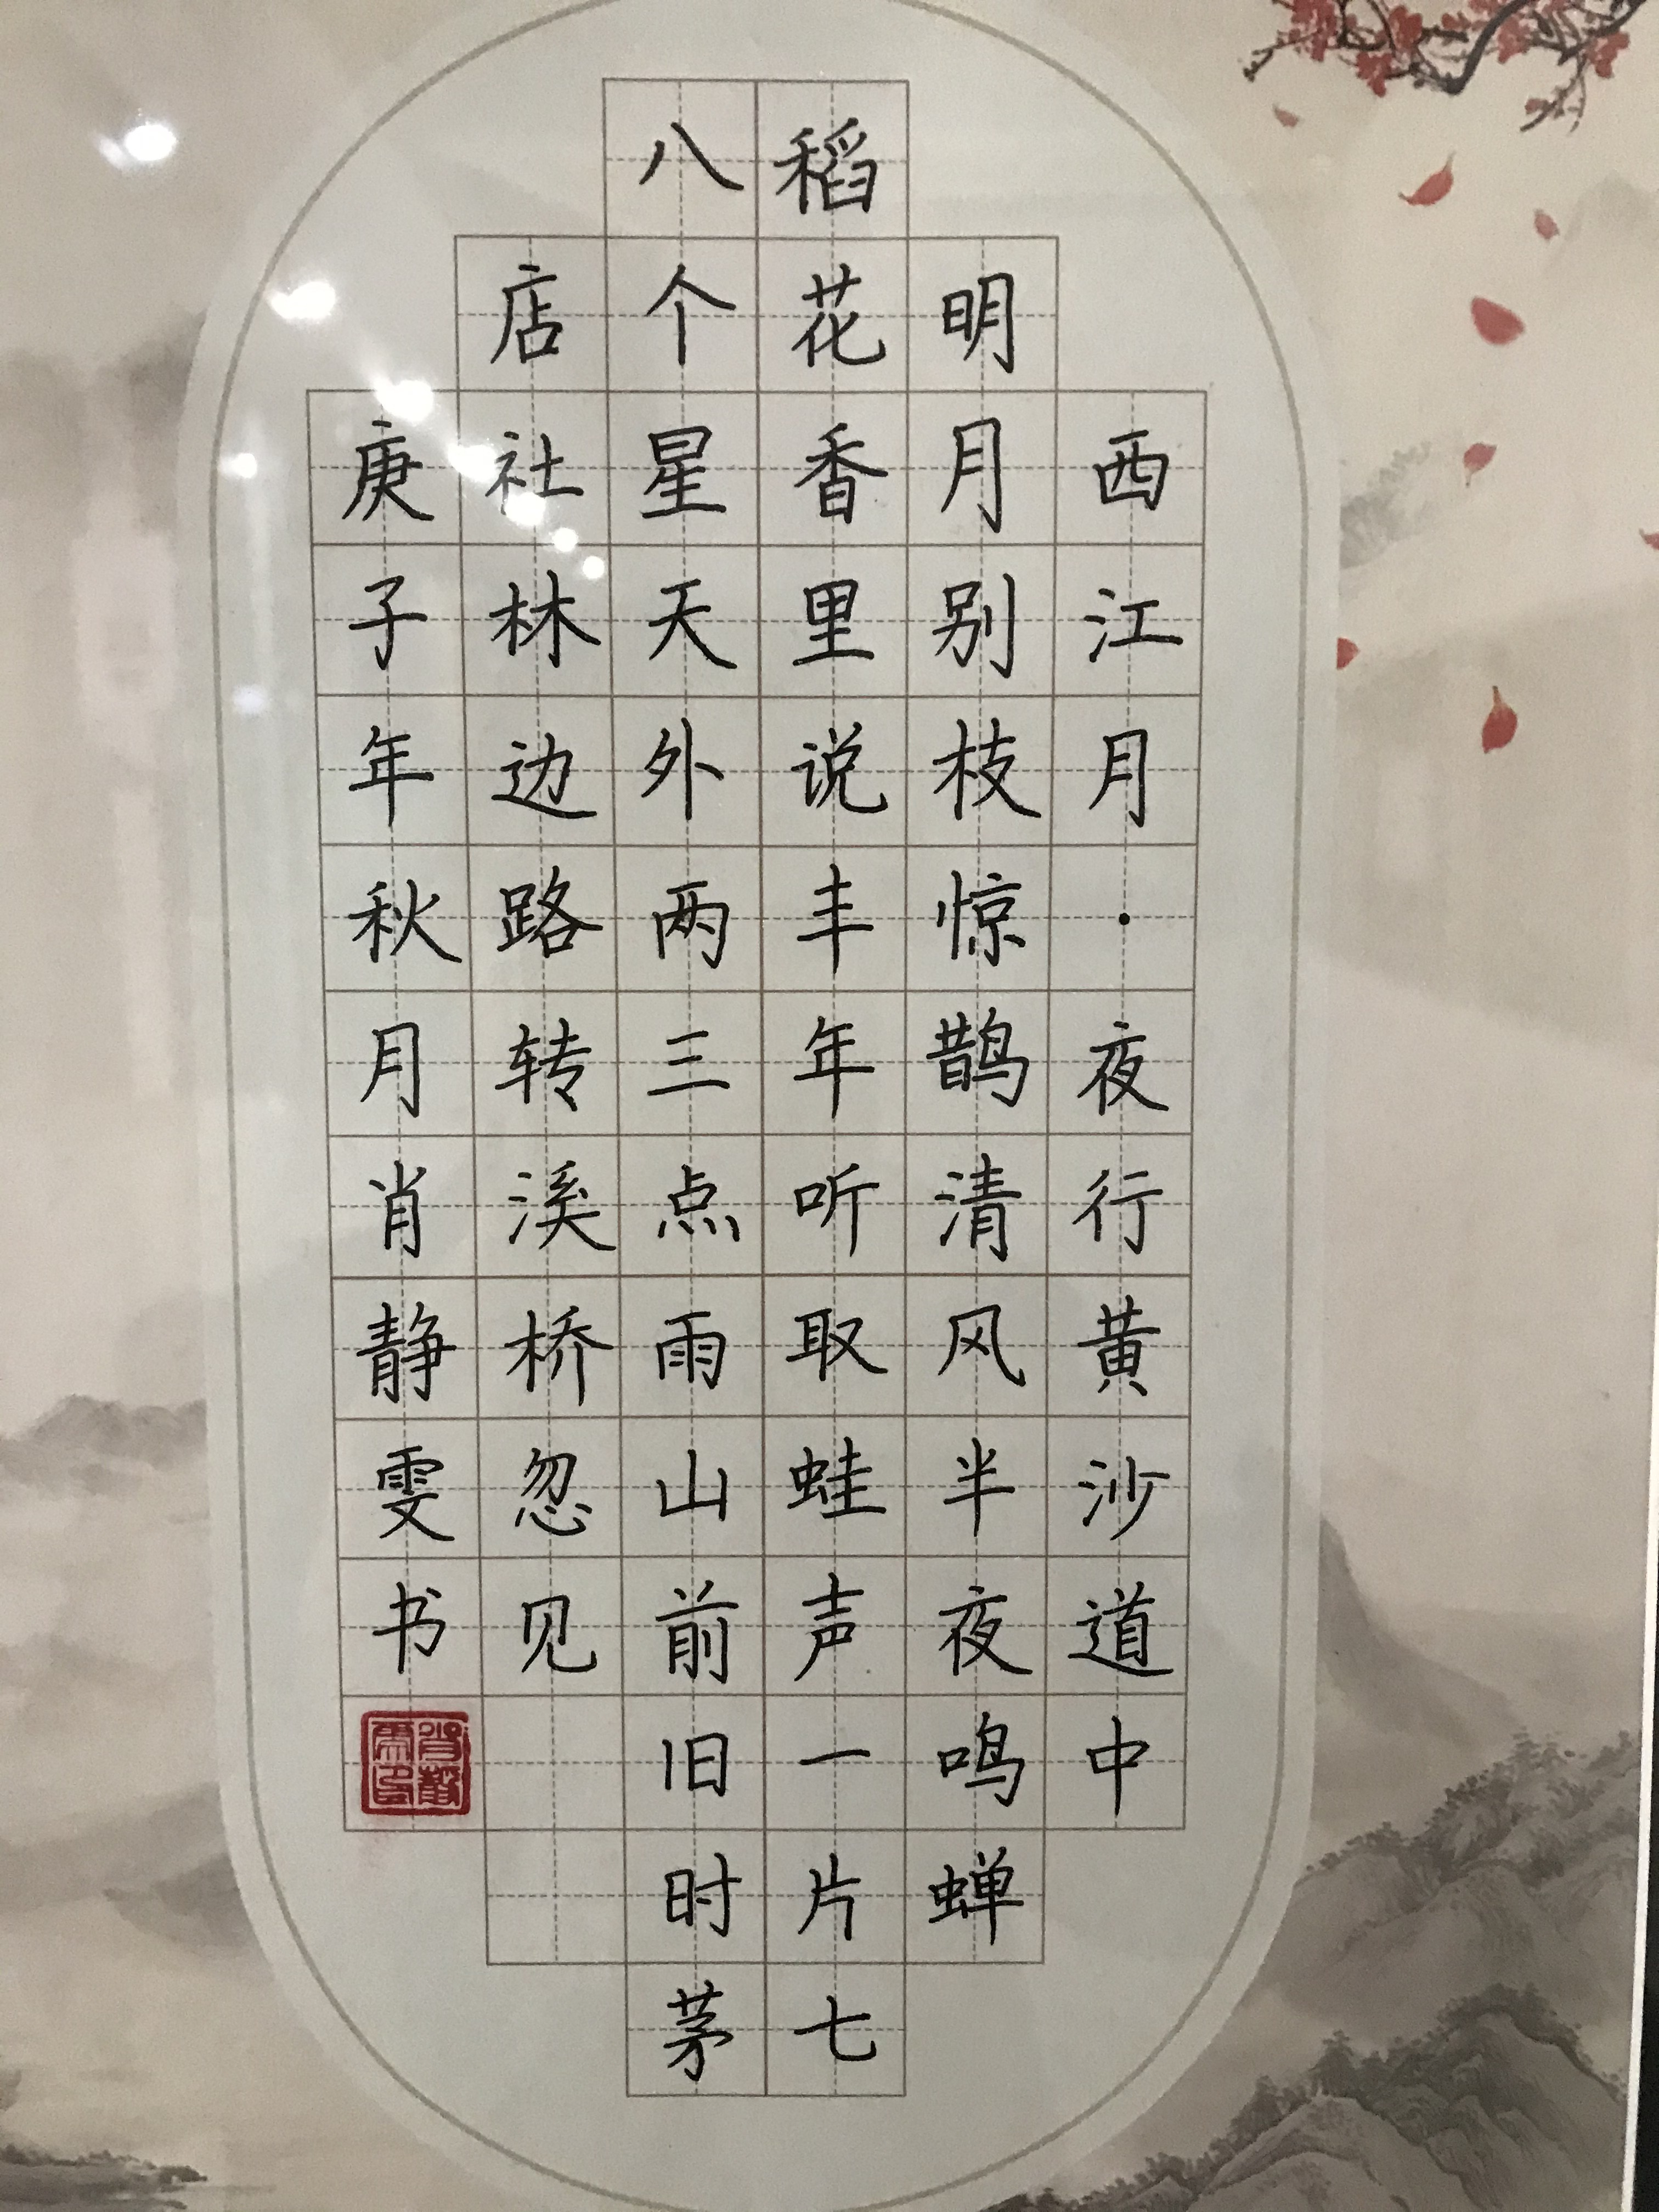 西江月·夜行黄沙道中
明月别枝惊鹊清风半夜鸣蝉
稻花香里说丰年听取蛙声一片七
八个星天外两三点雨山前旧时茅
店社林边路转溪桥忽见
庚子年秋月肖静雯书